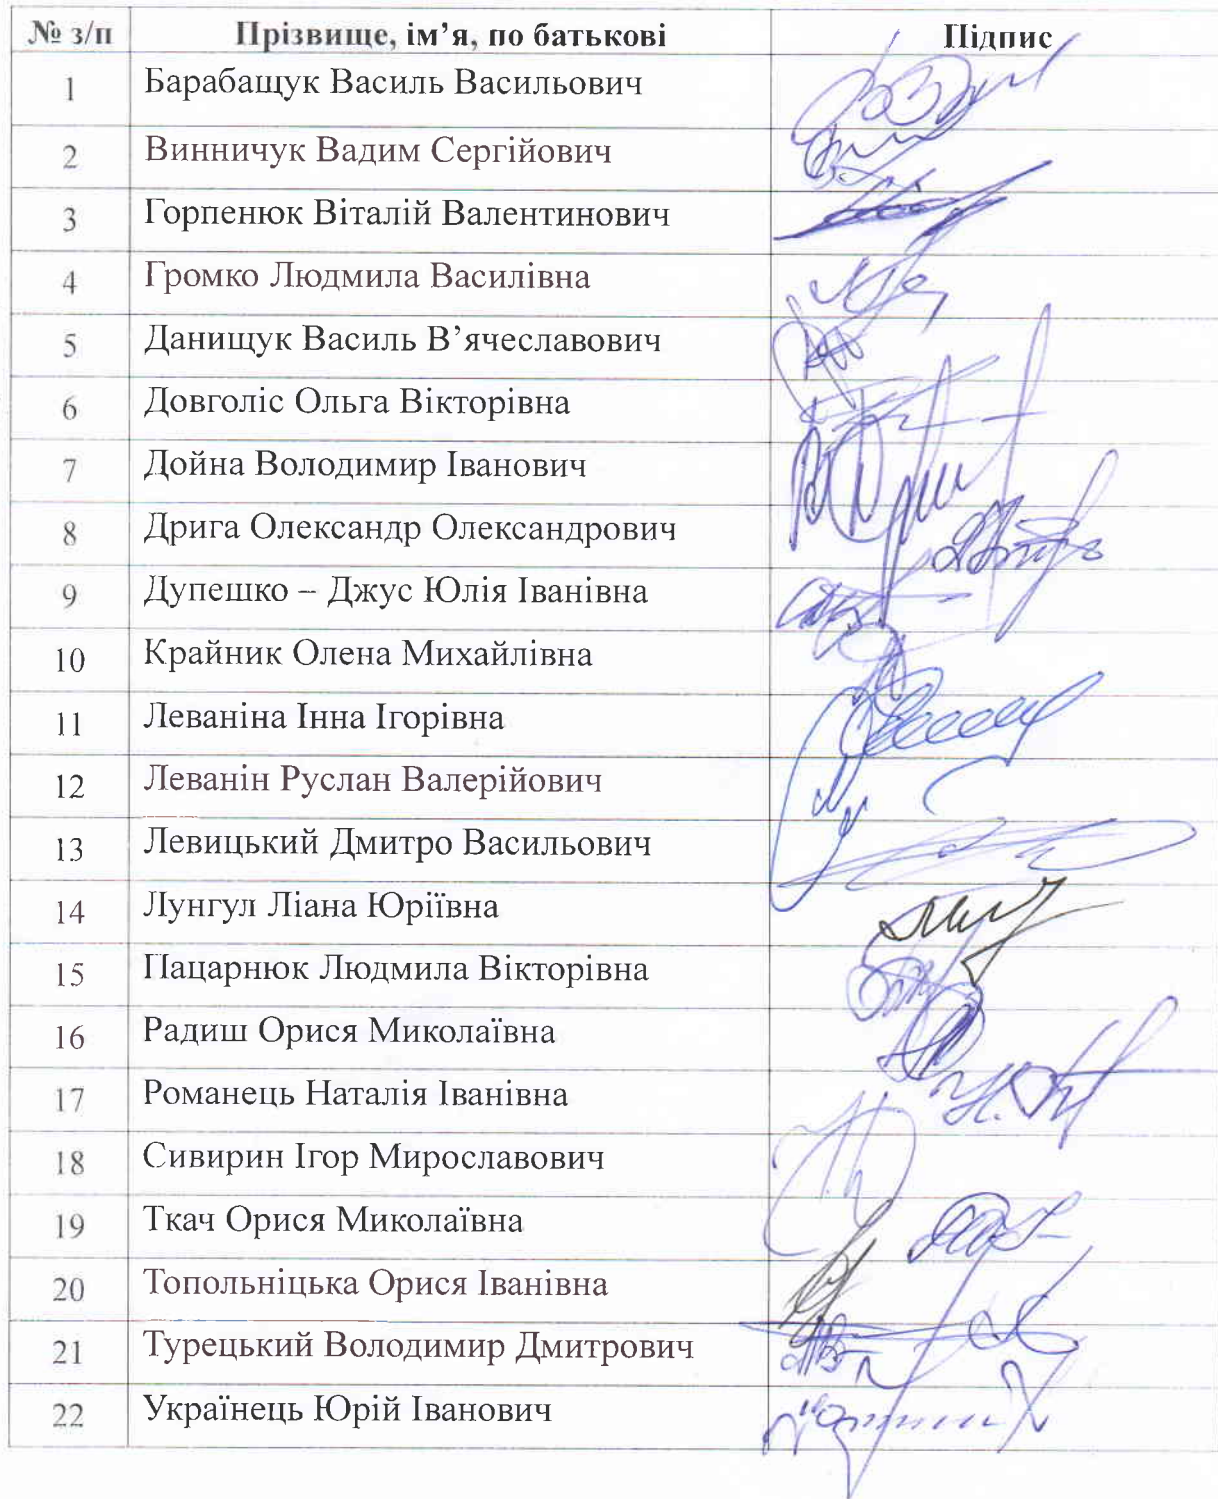 № з/п Прізвище, ім’я, по батькові Підпис
1 Барабащук Василь Васильович
2 Винничук Вадим Сергійович
3 Горпенюк Віталій Валентинович
4 Громко Людмила Василівна
5 Данищук Василь В’ячеславович
6 Довголіс Ольга Вікторівна
7 Дойна Володимир Іванович
8 Дрига Олександр Олександрович
9 Дупешко – Джус Юлія Іванівна
10 Крайник Олена Михайлівна
11 Леваніна Інна Ігорівна
12 Леванін Руслан Валерійович
13 Левицький Дмитро Васильович
14 Лунгул Ліана Юріївна
15 Пацарнюк Людмила Вікторівна
16 Радиш Орися Миколаївна
17 Романець Наталія Іванівна
18 Сивирин Ігор Мирославович
19 Ткач Орися Миколаївна
20 Топольніцька Орися Іванівна
21 Турецький Володимир Дмитрович
22 Українець Юрій Іванович